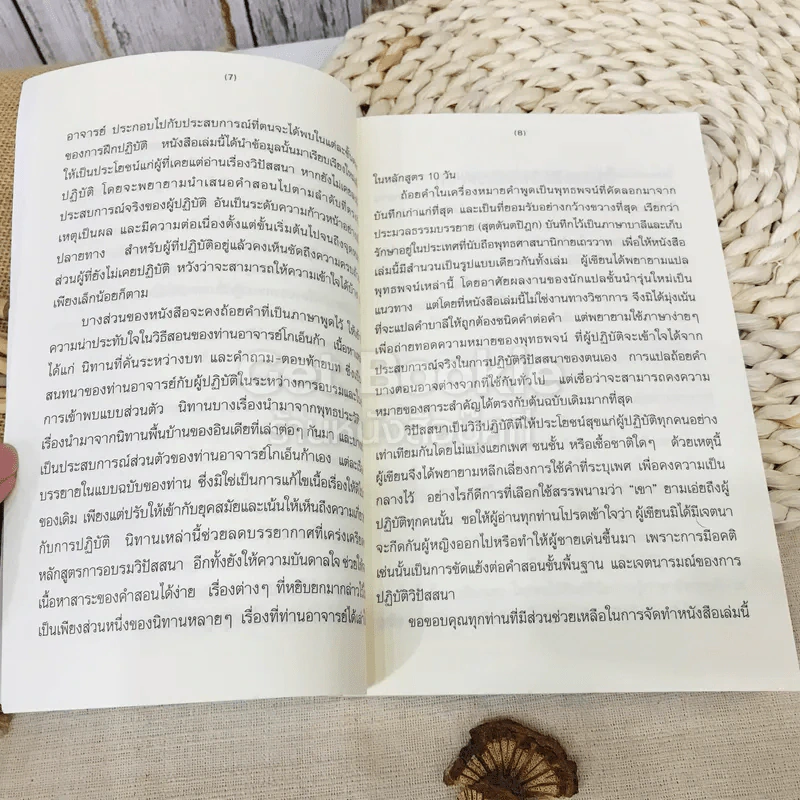 (7)
อาจารย์ ประกอบไปกับประสบการณ์ที่ตนจะได้พบในแต่ละขั้น
ของการฝึกปฏิบัติ หนังสือเล่มนี้ได้นำข้อมูลนั้นมาเรียบเรียงใหม่
ให้เป็นประโยชน์แก่ผู้ที่เคยแต่อ่านเรื่องวิปัสสนา หากยังไม่เคย
ปฏิบัติ โดยจะพยายามนำเสนอคำสอนไปตามลำดับที่
ประสบการณ์จริงของผู้ปฏิบัติ อันเป็นระดับความก้าวหน้าอย่าง
เหตุเป็นผล และมีความต่อเนื่องตั้งแต่ขั้นเริ่มต้นไปจนถึงจุด
ปลายทาง สำหรับผู้ที่ปฏิบัติอยู่แล้วคงเห็นชัดถึงความ
ส่วนผู้ที่ยังไม่เคยปฏิบัติ หวังว่าจะสามารถให้ความเข้าใจได้
เพียงเล็กน้อยก็ตาม
บางส่วนของหนังสือจะคงถ้อยคำที่เป็นภาษาพูดไว้ ให้
ความน่าประทับใจในวิธีสอนของท่านอาจารย์โกเอ็นก้า
ได้แก่ นิทานที่คั่นระหว่างบท และคำถาม-ตอบท้ายบท ซึ่ง
สนทนาของท่านอาจารย์กับผู้ปฏิบัติในระหว่างการอบรมและใน
การเข้าพบแบบส่วนตัว นิทานบางเรื่องนำมาจากพุทธประวัติ
เรื่องนำมาจากนิทานพื้นบ้านของอินเดียที่เล่าต่อๆ กันมา และ
เป็นประสบการณ์ส่วนตัวของท่านอาจารย์โกเอ็นก้าเอง แต่ละ
บรรยายในแบบฉบับของท่าน ซึ่งมิใช่เป็นการแก้ไขเนื้อเรื่องให้
ของเดิม เพียงแต่ปรับให้เข้ากับยุคสมัยและเน้นให้เห็นถึงความ
กับการปฏิบัติ นิทานเหล่านี้ช่วยลดบรรยากาศที่เคร่งเครียด
หลักสูตรการอบรมวิปัสสนา อีกทั้งยังให้ความบันดาลใจ ช่วยให้
เนื้อหาสาระของคำสอนได้ง่าย เรื่องต่างๆ ที่หยิบยกมากล่าว
เป็นเพียงส่วนหนึ่งของนิทานหลายๆ เรื่องที่ท่านอาจารย์ได้เล่า
(8)
ในหลักสูตร 10 วัน
ถ้อยคำในเครื่องหมายคำพูดเป็นพุทธพจน์ที่คัดลอกมาจาก
บันทึกเก่าแก่ที่สุด และเป็นที่ยอมรับอย่างกว้างขวางที่สุด เรียกว่า
ประมวลธรรมบรรยาย (สุตตันตปิฎก) บันทึกไว้เป็นภาษาบาลีและเก็บ
รักษาอยู่ในประเทศที่นับถือพุทธศาสนานิกายเถรวาท เพื่อให้หนังสือ
เล่มนี้มีสำนวนเป็นรูปแบบเดียวกันทั้งเล่ม ผู้เขียนได้พยายามแปล
พุทธพจน์เหล่านี้ โดยอาศัยผลงานของนักแปลชั้นนำรุ่นใหม่เป็น
แนวทาง แต่โดยที่หนังสือเล่มนี้ไม่ใช่งานทางวิชาการ จึงมิได้มุ่งเน้น
ที่จะแปลคำบาลีให้ถูกต้องชนิดคำต่อคำ แต่พยายามใช้ภาษาง่ายๆ
เพื่อถ่ายทอดความหมายของพุทธพจน์ ที่ผู้ปฏิบัติจะเข้าใจได้จาก
ประสบการณ์จริงในการปฏิบัติวิปัสสนาของตนเอง การแปลถ้อยคำ
บางตอนอาจต่างจากที่ใช้กันทั่วไป แต่เชื่อว่าจะสามารถคงความ
หมายของสาระสำคัญได้ตรงกับต้นฉบับเดิมมากที่สุด
วิปัสสนาเป็นวิธีปฏิบัติที่ให้ประโยชน์สุขแก่ผู้ปฏิบัติทุกคนอย่าง
เท่าเทียมกันโดยไม่แบ่งแยกเพศ ชนชั้น หรือเชื้อชาติใดๆ ด้วยเหตุนี้
ผู้เขียนจึงได้พยายามหลีกเลี่ยงการใช้คำที่ระบุเพศ เพื่อคงความเป็น
กลางไว้ อย่างไรก็ดีการที่เลือกใช้สรรพนามว่า “เขา” ยามเอ่ยถึงผู้
ปฏิบัติทุกคนนั้น ขอให้ผู้อ่านทุกท่านโปรดเข้าใจว่า ผู้เขียนมิได้มีเจตนา
จะกีดกันผู้หญิงออกไปหรือทำให้ผู้ชายเด่นขึ้นมา เพราะการมีอคติ
เช่นนั้นเป็นการขัดแย้งต่อคำสอนขั้นพื้นฐาน และเจตนารมณ์ของการ
ปฏิบัติวิปัสสนา
ขอขอบคุณทุกท่านที่มีส่วนช่วยเหลือในการจัดทำหนังสือเล่มนี้